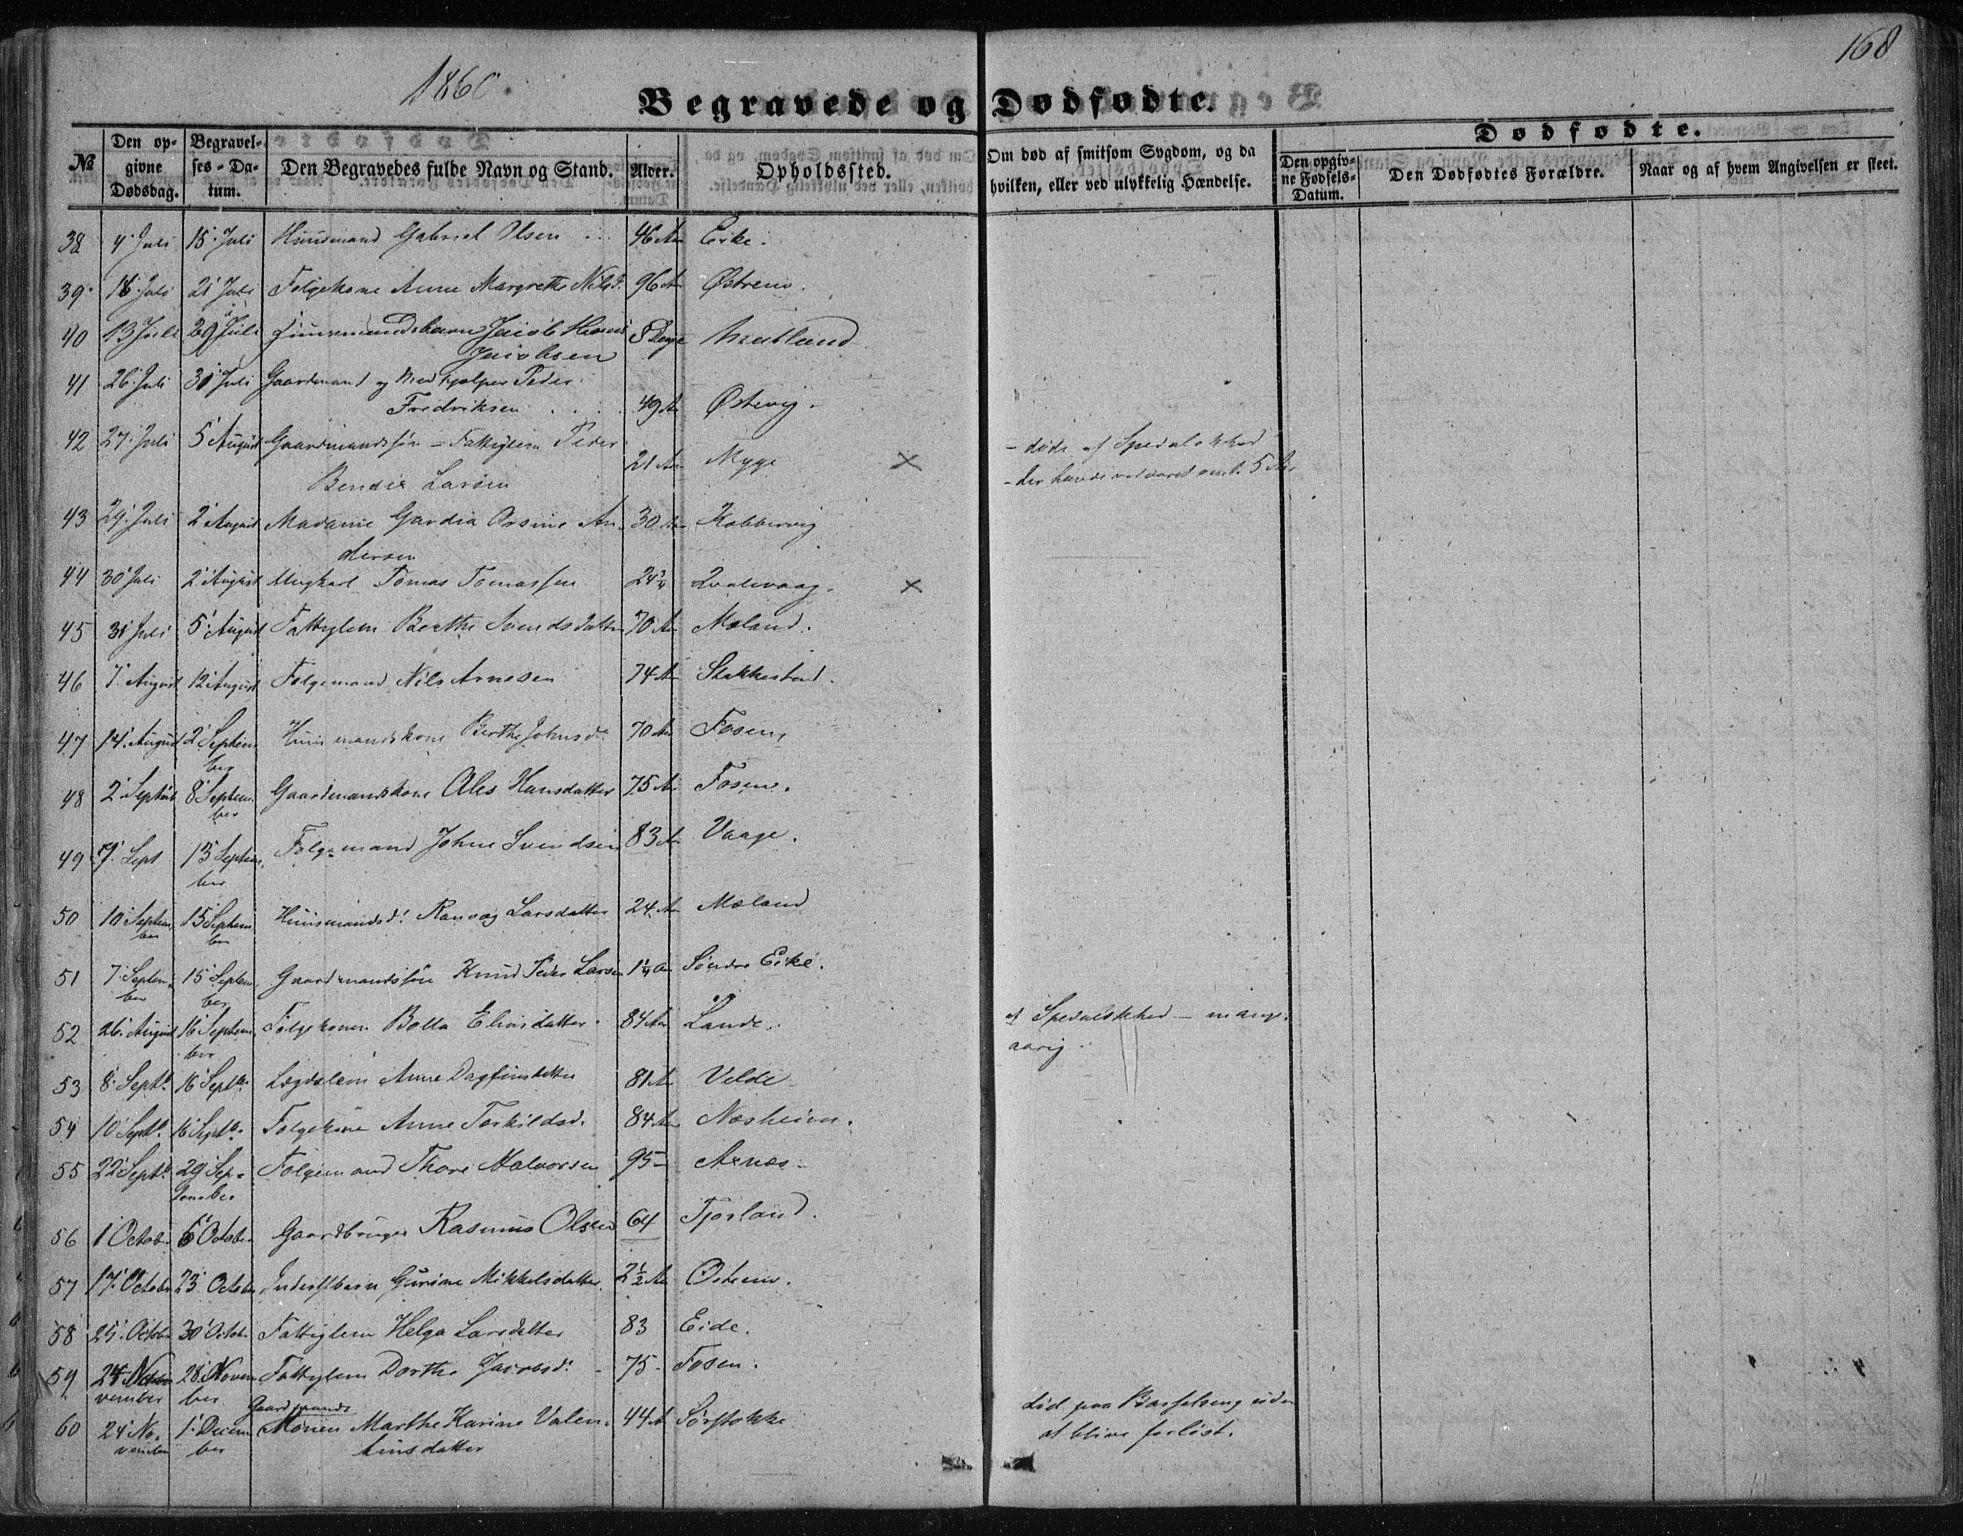 168
1860.
Begravede og Dødfødte.
№
Den opgivne Dødsdag.
Begravelses-Datum.
Den Begravedes fulde Navn og Stand.
Alder.
Opholdssted.
Om død af smitsom Sygdom, og da hvilken, eller ved ulykkelig Hændelse.
Dødfødte.
Den opgivne Fødsels-Datum.
Den Dødfødtes Forældre.
Naar og af hvem Angivelsen er skeet.
38 4 Juli 15 Juli Huusmand Gabriel Olsen 46 Aar Eike.
39 18 Juli 21 Juli Folgekone Anne Margrethe Nilsd. 96 Aar Østrem.
40 13 Juli 29 Juli Huusmandsbarn Jacob Hans
Jacobsen 8 Dage
41 26 Juli Juli Gaardmand og Medhjælper Peder
Fredriksen 49 Aar Østevig.
42 27 Juli 5 August Gaardmandssøn - Fattiglem Peder
Bendix Larsen 21 Aar Myge × - døde af Spedalskhed
- der havde vedvaret omtr. 5 Aar
43 29 Juli 2 August Madame Gardia Orsine An
dersen 30 Aar Kobbervig
44 30 Juli 2 August Ungkarl Tomas Tomassen 24 3/4 Qvalevaag. ×
45 31 Juli 5 August Fattiglem Berthe Svendsdatter 70 Aar Mæland.
46 7 August 12 August Folgemand Nils Arnesen 74 Aar Stakkestad.
47 14 August 2 Septem
ber Huusmandskone Berthe Johnsd. 70 Aar Fosen,
48 2 Septbr 8 Septem
ber Gaardmandskone Ales Hansdatter 75 Aar Fosen.
49 7 Sept 15 Septem
ber Folgemand John Svendsen 83 Aar Vaage.
50 10 Septem
ber 15 Septem
ber Huusmandsd. Ranvag Larsdatter 24 Aar Mæland
51 7 Septem
ber 15 Septem
ber Gaardmandssøn Knud Peder Larsen 1 1/4 Aar Søndre Eike.
52 26 August 16 Septem
ber Folgekone Bolla Eliasdatter 84 Aar Lande. af Spedalskhed - mange
aarig.
53 8 Septb. 16 Septbr. Lægdslem Anne Dagfinsdatter 81 Aar Velde
54 10 Septb. 16 Septbr. Folgekone Anne Torkildsd. 84 Aar Næsheim.
55 22 Septb. 29 Sep-
tember Folgemand Thore Halvorsen 95 - Arnæs -
56 1 Octob. 6 Octobr Gaardbruger Rasmus Olsen 64 Fjorland.
57 17 Octobr 23 October Inderstbarn Gurine Mikkelsdatter 2 1/2 Aar Østrem.
58 25 Octobr 30 Octobr Fattiglem Helga Larsdatter 83 Eide.
59 24 No
vember 28 Novem
ber Fattiglem Dorthe Jacobsd. 75 - Fosen.
60 24 No
vember 1 Decem
ber Gaardmands
Konen Marthe Karine Valen
tinsdatter 44 A Sørstokke død paa Barselseng uden
at blive forløst.